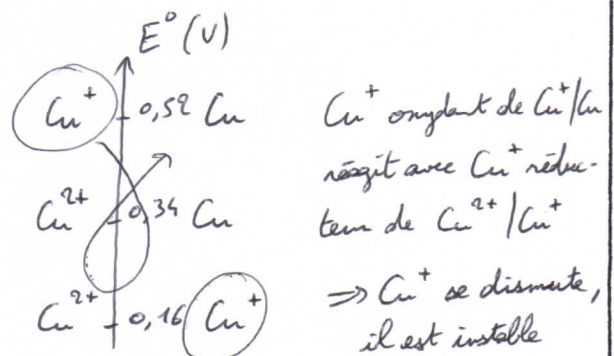 E° (V)
Cu⁺ 0,52 Cu
Cu²⁺ 0,34 Cu
Cu²⁺ 0,16 Cu⁺
Cu⁺ oxydant de Cu⁺/Cu
réagit avec Cu⁺ réduc-
teur de Cu²⁺/Cu⁺
=> Cu⁺ se dismute,
il est instable